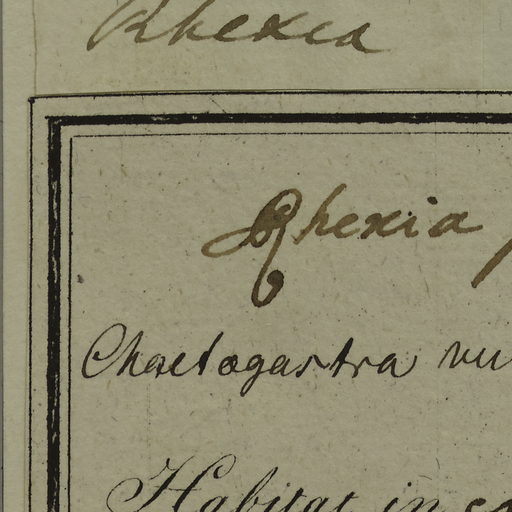 Rhexia
Rhexia
Chaetogastra
Habitat in